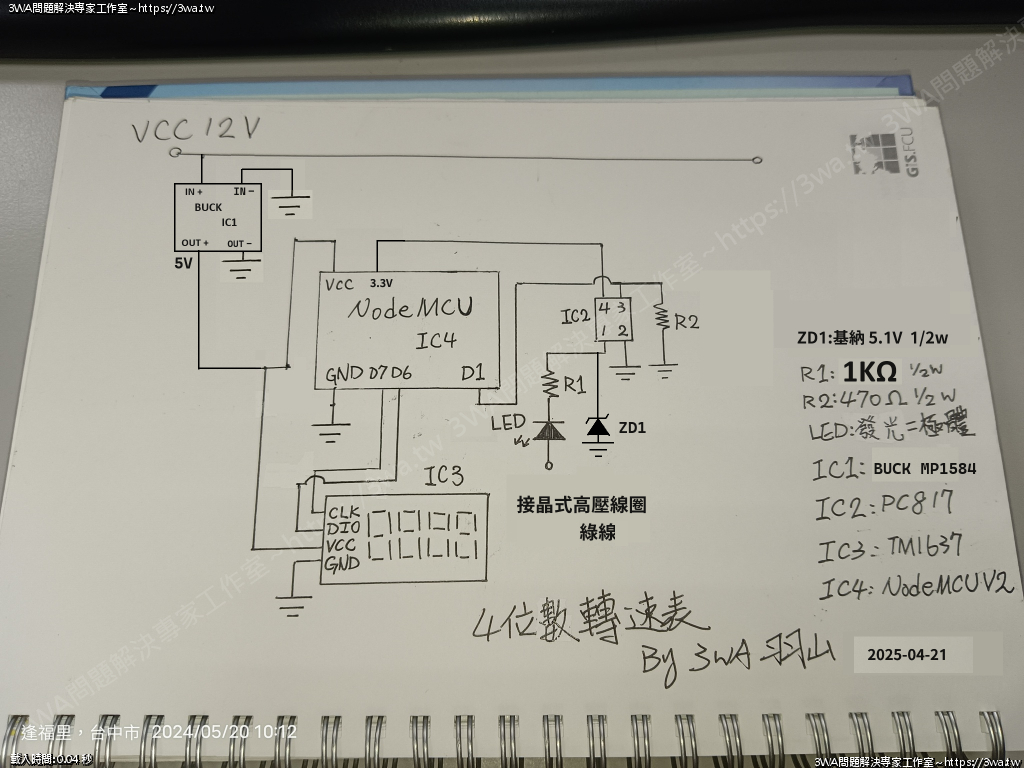 3WA問題解決專家工作室~https://3wa.tw
VCC 12V
GIS.FCU
IN+ IN-
BUCK
IC1
OUT+ OUT-
5V
VCC 3.3V
NodeMCU
IC4
GND D7 D6 D1
IC2
4 3
1 2
R2
R1
LED
ZD1
IC3
CLK
DIO
VCC
GND
接晶式高壓線圈
綠線
ZD1:基納 5.1V 1/2w
R1: 1KΩ 1/2W
R2:470Ω 1/2W
LED:發光二極體
IC1: BUCK MP1584
IC2: PC817
IC3: TM1637
IC4: NodeMCU V2
4位數轉速表
By 3WA 羽山
2025-04-21
逢福里,台中市 2024/05/20 10:12
載入時間:0.04 秒
3WA問題解決專家工作室~https://3wa.tw
3WA問題解決專家工作室~https://3wa.tw